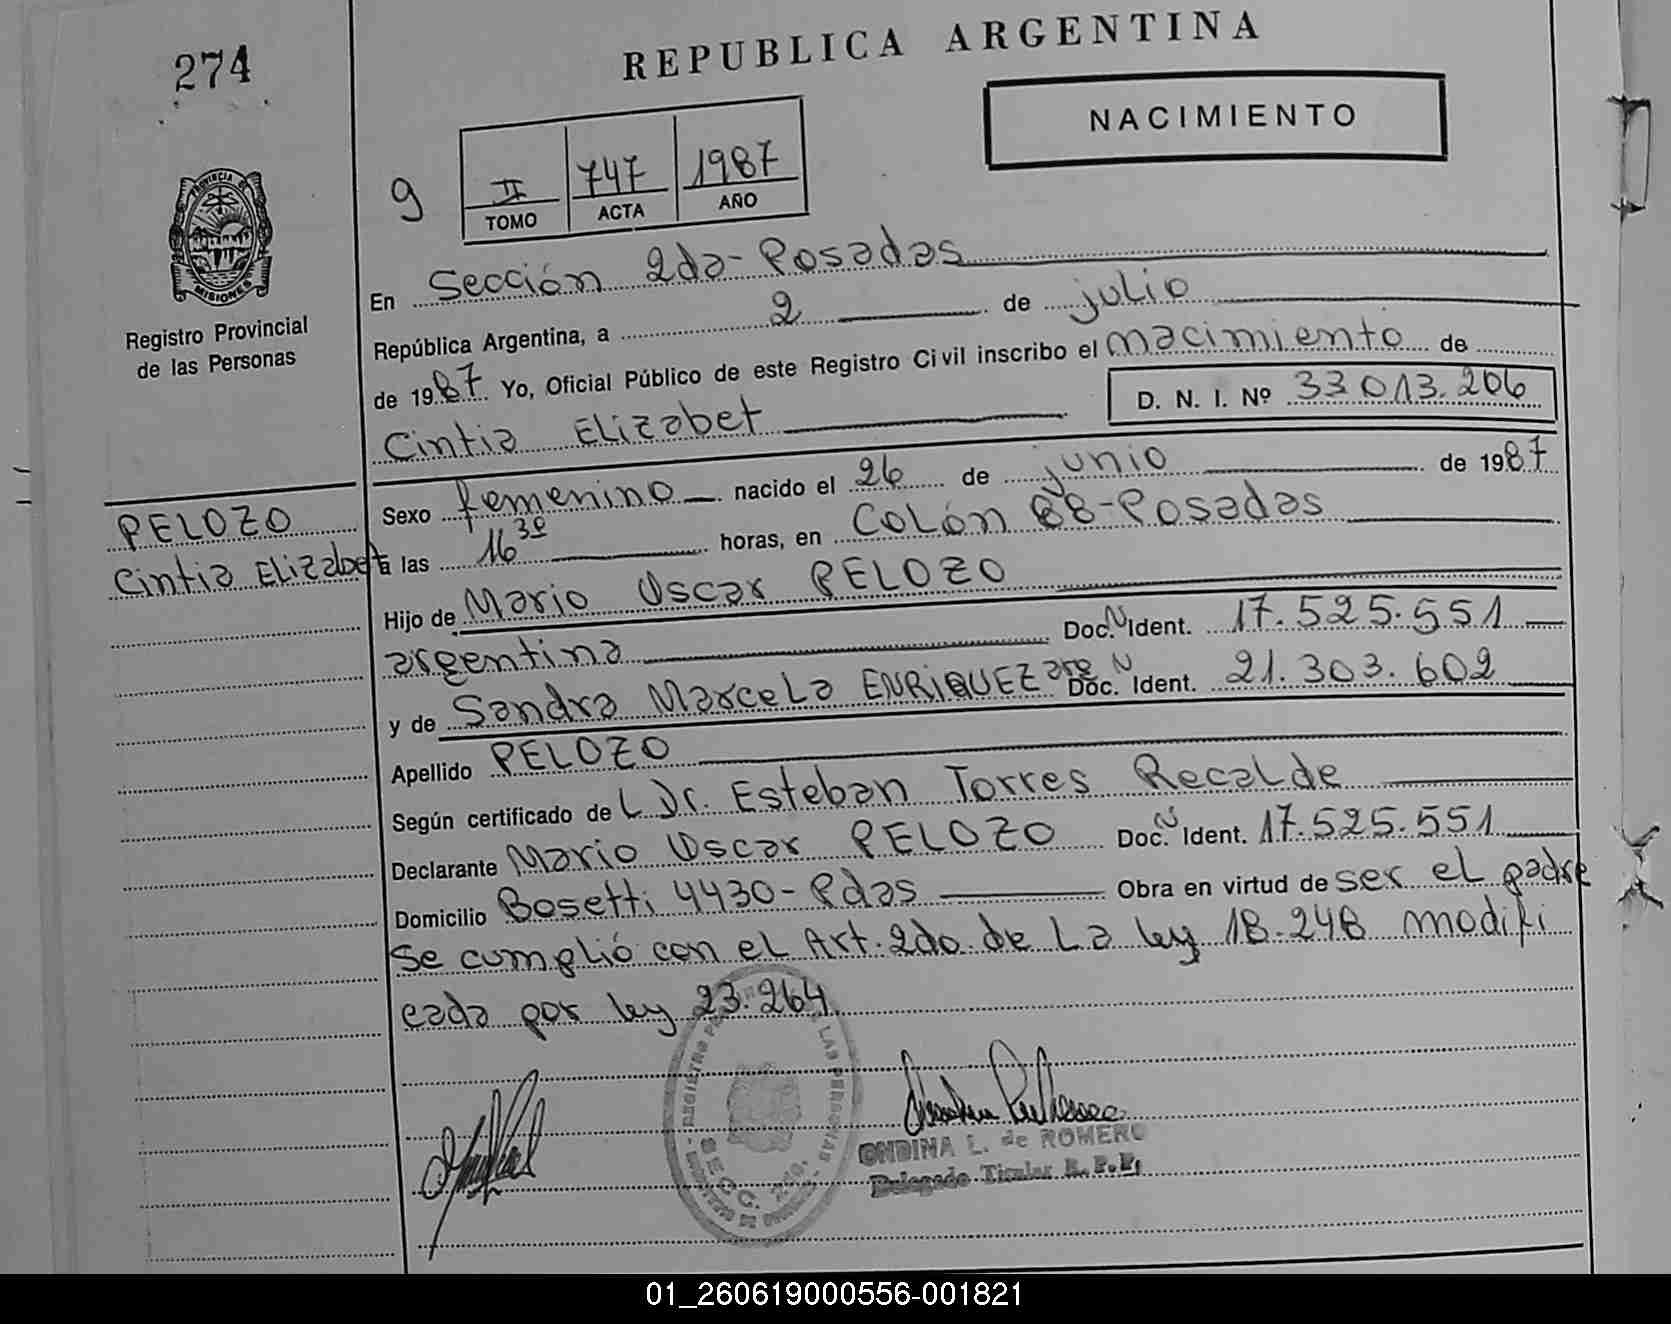 274
REPUBLICA ARGENTINA
NACIMIENTO
9
II 747 1987
TOMO ACTA AÑO
PROVINCIA DE
MISIONES
Registro Provincial
de las Personas
En Sección 2da - Posadas
República Argentina, a 2 de julio
de 1987 Yo, Oficial Público de este Registro Civil inscribo el nacimiento de
D. N. I. Nº 33.013.206
Cintia Elizabet
Sexo femenino nacido el 26 de junio de 1987
PELOZO
Cintia Elizabet
a las 16 30 horas, en Colón 88 - Posadas
Hijo de Mario Oscar PELOZO
argentina Doc. N Ident. 17.525.551
y de Sandra Marcela ENRIQUEZ arg Doc. N Ident. 21.303.602
Apellido PELOZO
Según certificado de L Dr. Esteban Torres Recalde
Declarante Mario Oscar PELOZO Doc. N Ident. 17.525.551
Domicilio Bosetti 4430 - Pdas Obra en virtud de ser el padre
Se cumplió con el Art. 2do. de La ley 18.248 modifi
cada por ley 23.264
LAS PERSONAS
REGISTRO
SECC. 2da.
ONDINA L. de ROMERO
Delegado Titular R. P. P.
01_260619000556-001821